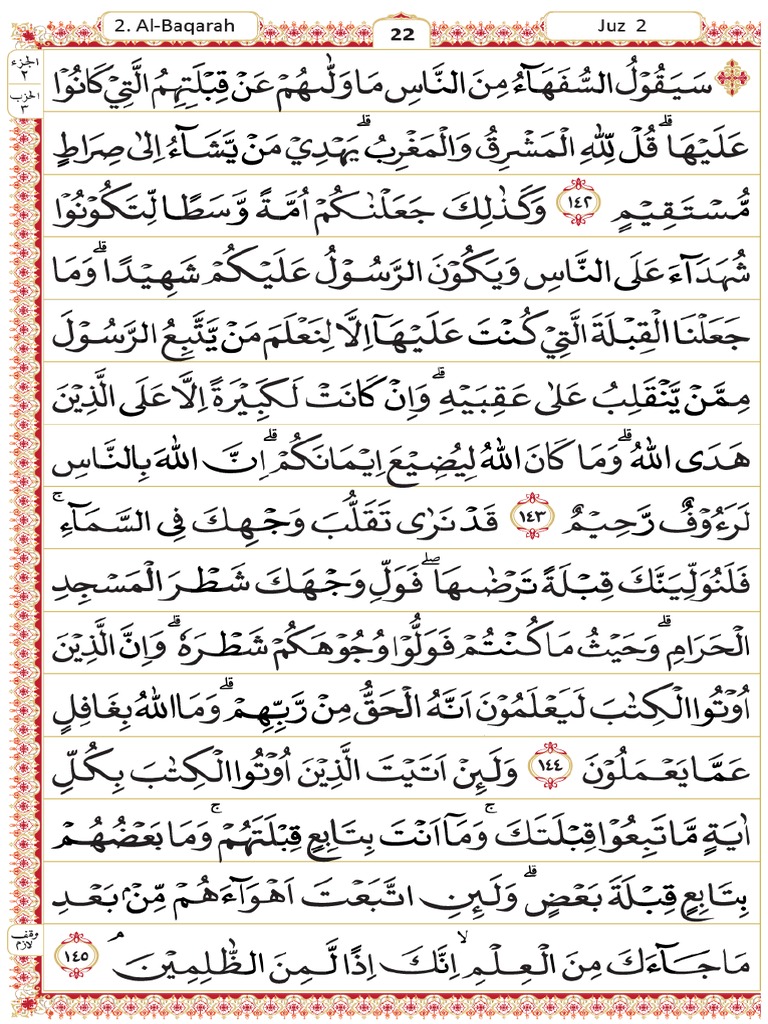 2. Al-Baqarah
22
Juz 2
الجزء
٢
الحزب
٣
سَيَقُوْلُ السُّفَهَاۤءُ مِنَ النَّاسِ مَا وَلّٰىهُمْ عَنْ قِبْلَتِهِمُ الَّتِيْ كَانُوْا
عَلَيْهَا ۗ قُلْ لِّلّٰهِ الْمَشْرِقُ وَالْمَغْرِبُ ۗ يَهْدِيْ مَنْ يَّشَاۤءُ اِلٰى صِرَاطٍ
مُّسْتَقِيْمٍ ١٤٢ وَكَذٰلِكَ جَعَلْنٰكُمْ اُمَّةً وَّسَطًا لِّتَكُوْنُوْا
شُهَدَاۤءَ عَلَى النَّاسِ وَيَكُوْنَ الرَّسُوْلُ عَلَيْكُمْ شَهِيْدًا ۗ وَمَا
جَعَلْنَا الْقِبْلَةَ الَّتِيْ كُنْتَ عَلَيْهَآ اِلَّا لِنَعْلَمَ مَنْ يَّتَّبِعُ الرَّسُوْلَ
مِمَّنْ يَّنْقَلِبُ عَلٰى عَقِبَيْهِ ۗ وَاِنْ كَانَتْ لَكَبِيْرَةً اِلَّا عَلَى الَّذِيْنَ
هَدَى اللّٰهُ ۗ وَمَا كَانَ اللّٰهُ لِيُضِيْعَ اِيْمَانَكُمْ ۗ اِنَّ اللّٰهَ بِالنَّاسِ
لَرَءُوْفٌ رَّحِيْمٌ ١٤٣ قَدْ نَرٰى تَقَلُّبَ وَجْهِكَ فِى السَّمَاۤءِ ۚ
فَلَنُوَلِّيَنَّكَ قِبْلَةً تَرْضٰىهَا ۖ فَوَلِّ وَجْهَكَ شَطْرَ الْمَسْجِدِ
الْحَرَامِ ۗ وَحَيْثُ مَا كُنْتُمْ فَوَلُّوْا وُجُوْهَكُمْ شَطْرَهٗ ۗ وَاِنَّ الَّذِيْنَ
اُوْتُوا الْكِتٰبَ لَيَعْلَمُوْنَ اَنَّهُ الْحَقُّ مِنْ رَّبِّهِمْ ۗ وَمَا اللّٰهُ بِغَافِلٍ
عَمَّا يَعْمَلُوْنَ ١٤٤ وَلَىِٕنْ اَتَيْتَ الَّذِيْنَ اُوْتُوا الْكِتٰبَ بِكُلِّ
اٰيَةٍ مَّا تَبِعُوْا قِبْلَتَكَ ۚ وَمَآ اَنْتَ بِتَابِعٍ قِبْلَتَهُمْ ۚ وَمَا بَعْضُهُمْ
بِتَابِعٍ قِبْلَةَ بَعْضٍ ۗ وَلَىِٕنِ اتَّبَعْتَ اَهْوَاۤءَهُمْ مِّنْۢ بَعْدِ
مَا جَاۤءَكَ مِنَ الْعِلْمِ ۙ اِنَّكَ اِذًا لَّمِنَ الظّٰلِمِيْنَ ۘ ١٤٥
وقف
لازم